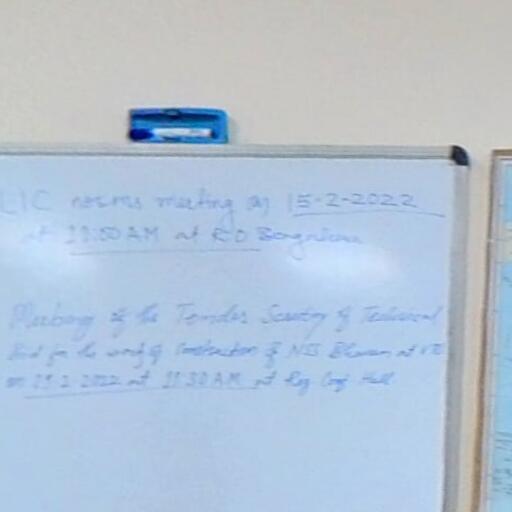 LIC norms meeting on 15-2-2022
at 11:30 AM at RO
Meeting of the Tender Scrutiny of Technical
Bid for the work of Construction of NSS Bhavan at
on 2022 at 11:30 AM at Reg Conf Hall